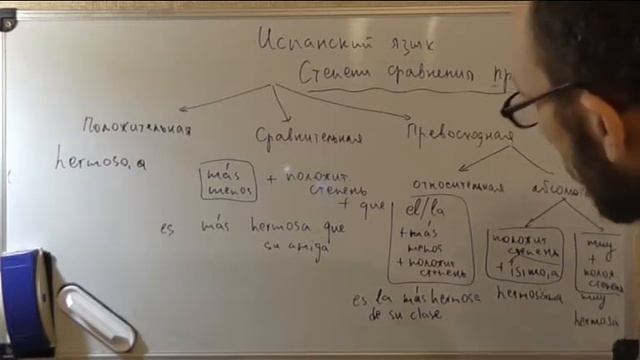 Испанский язык
Степени сравнения пр
Положительная
hermoso, a
Сравнительная
más
menos
+ положит.
степень
+ que
es más hermosa que
su amiga
Превосходная
относительная
el/la
+ más
menos
+ положит
степень
es la más hermosa
de su clase
абсолют
положит
степень
+ ísimo, a
hermosísima
muy
+
полож.
степень
muy
hermosa